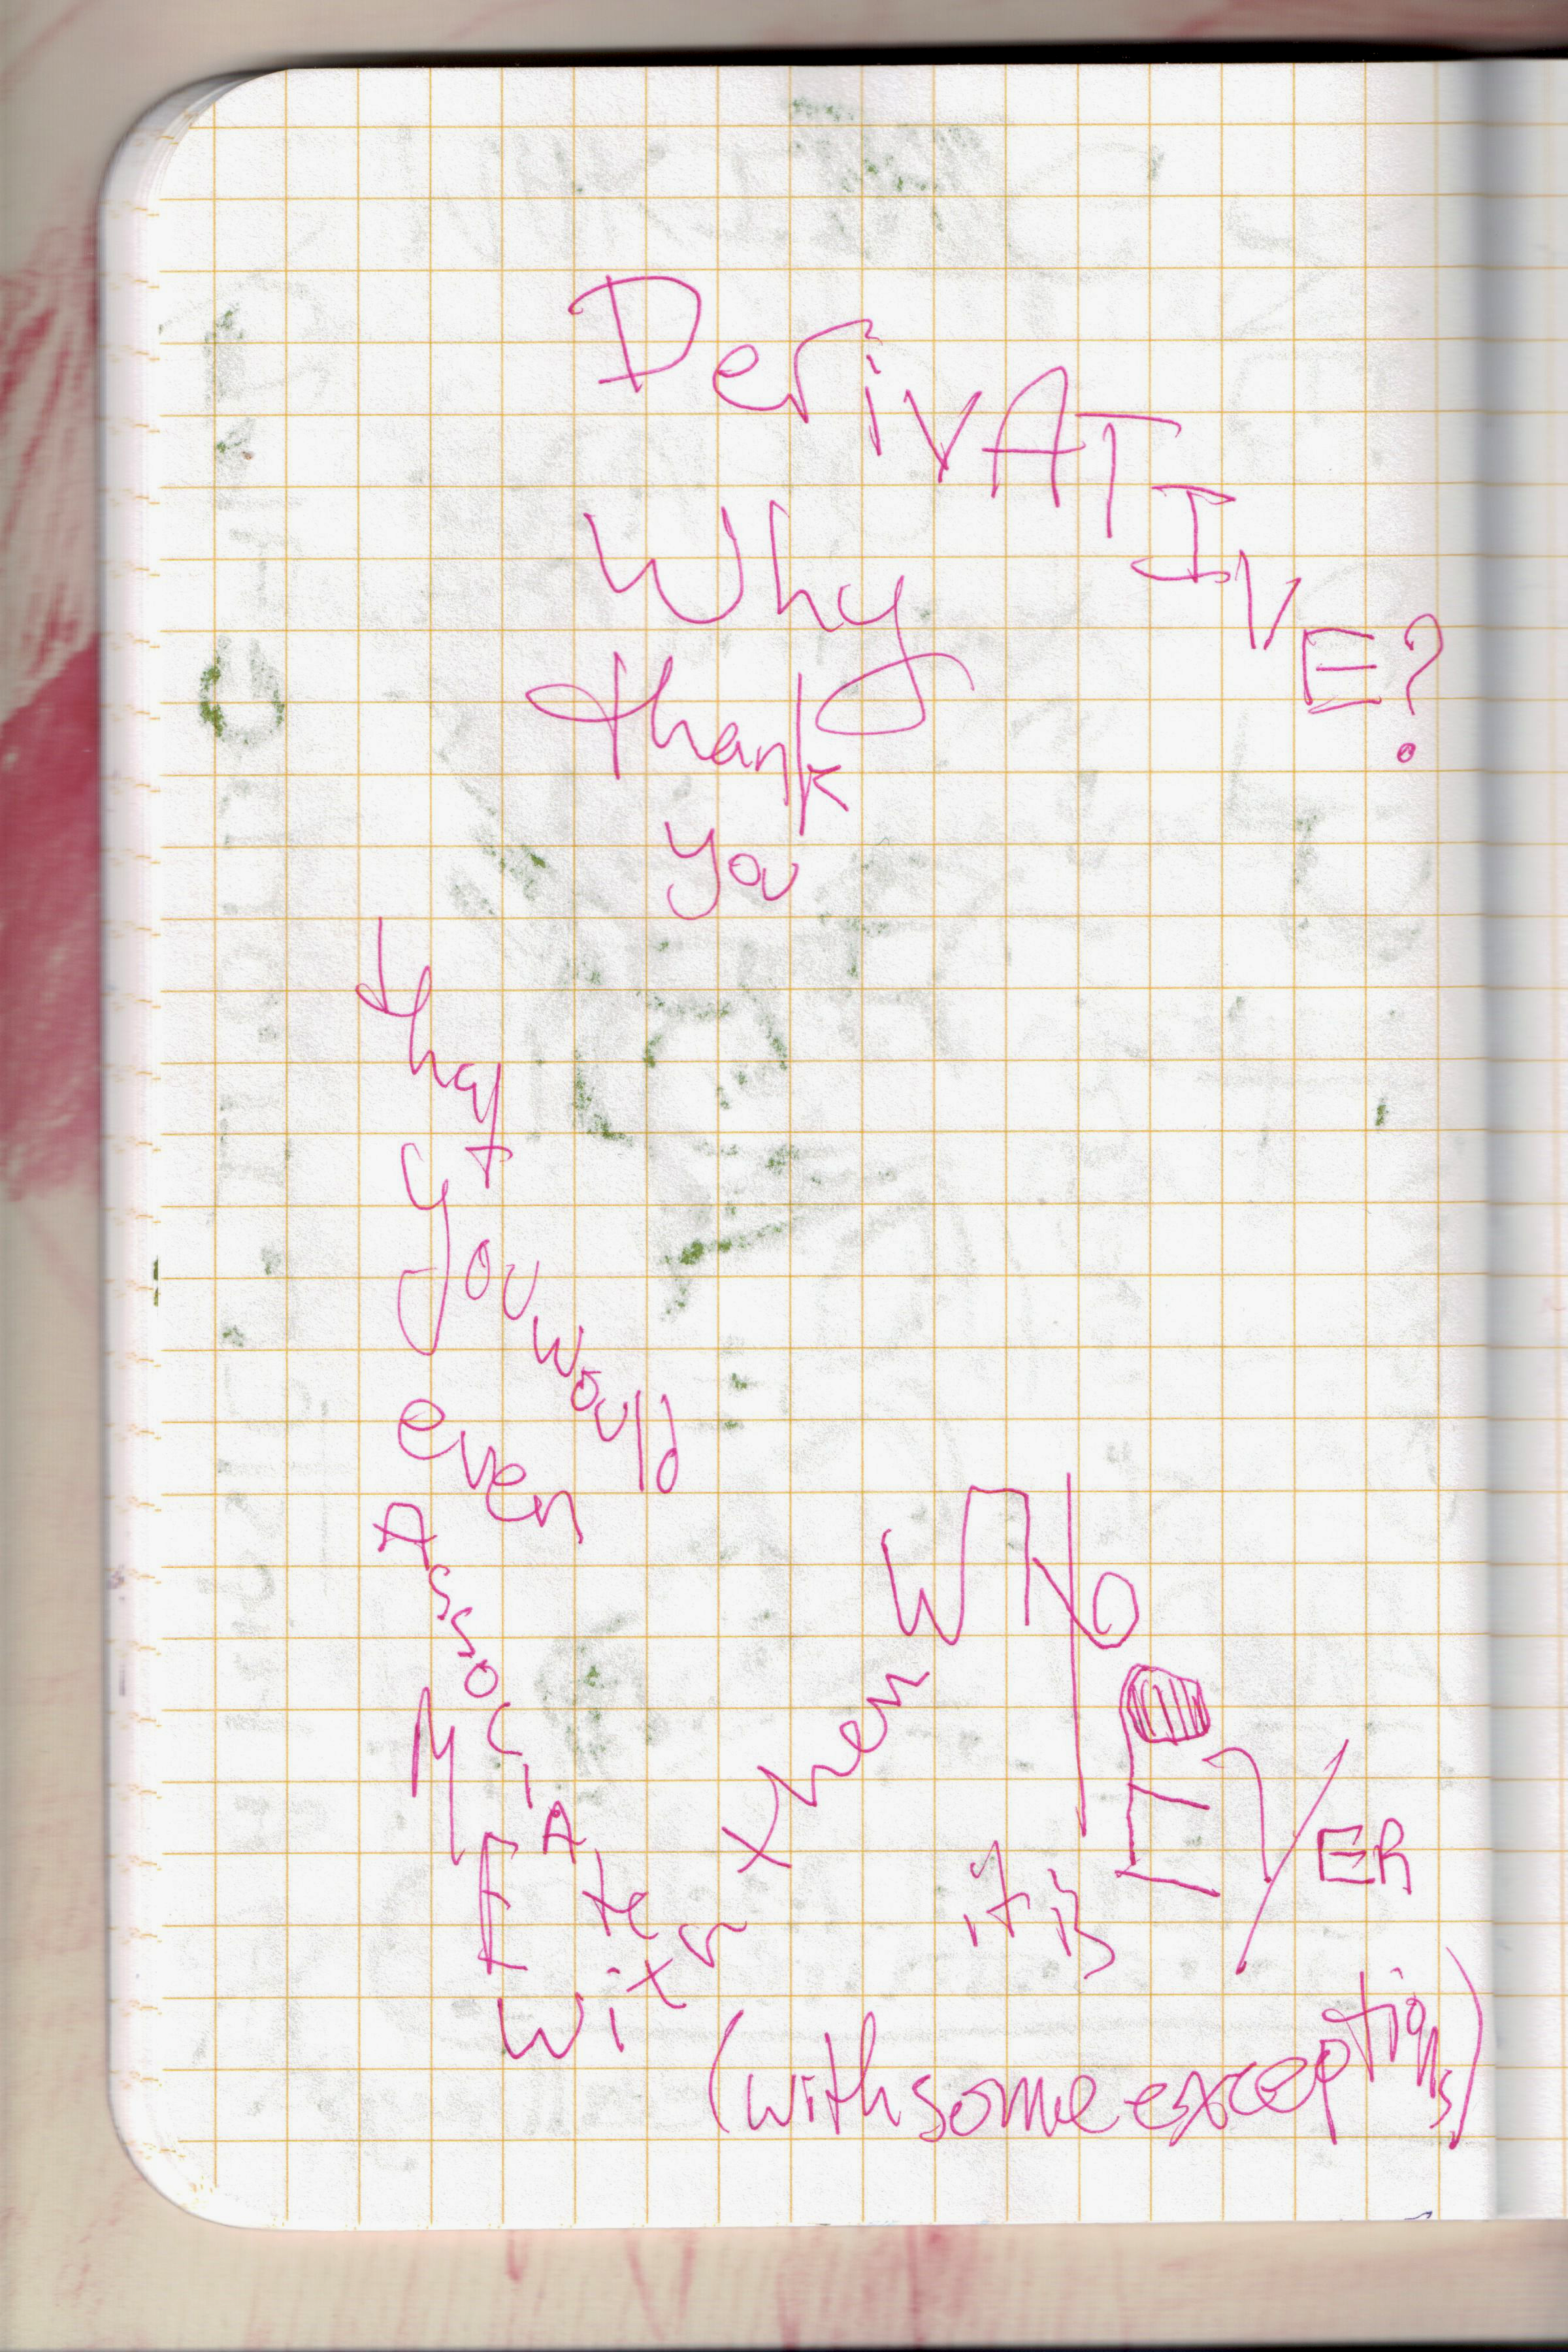 DerivATIVE?
Why
thank
you
that
you would
even
AssociAte
ME
with
them
WHO
EVER
it is
(with some exceptions)